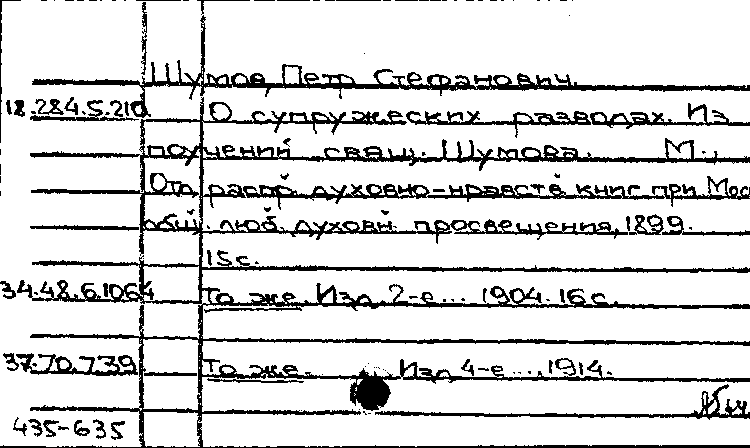 Шумов, Петр Стефанович.
18.284.5.210 О супружеских разводах. Из
поучений свящ. Шумова. М.,
Отд. распр. духовно-нравств. книг при Мос
общ. люб. духовн. просвещения, 1899.
15 с.
34.48.6.1064 То же. Изд. 2-е... 1904. 16 с.
37.70.739. То же. Изд. 4-е..., 1914.
435-635